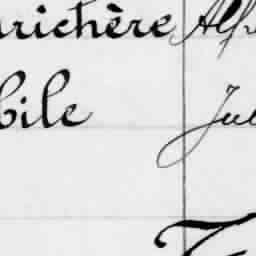 urichère Alfr
bile Jul